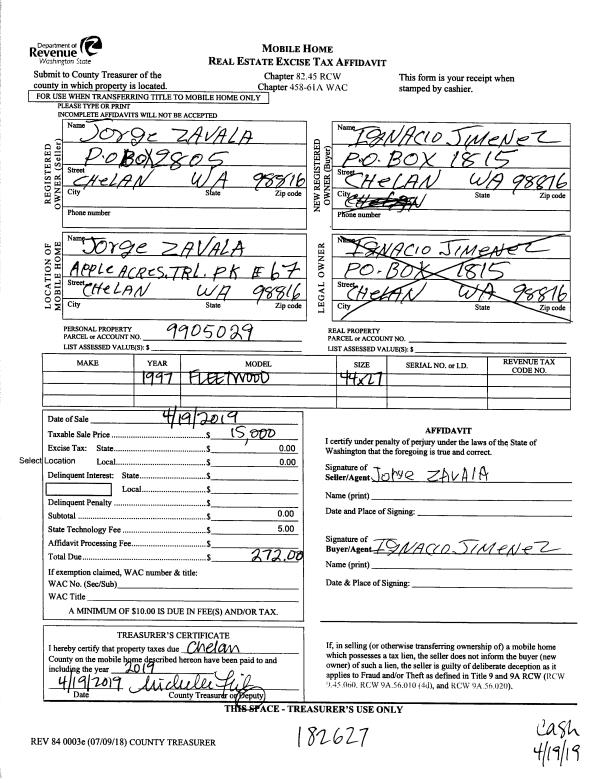 Department of
Revenue
Washington State
MOBILE HOME
REAL ESTATE EXCISE TAX AFFIDAVIT
Submit to County Treasurer of the
county in which property is located.
Chapter 82.45 RCW
Chapter 458-61A WAC
This form is your receipt when
stamped by cashier.
FOR USE WHEN TRANSFERRING TITLE TO MOBILE HOME ONLY
PLEASE TYPE OR PRINT
INCOMPLETE AFFIDAVITS WILL NOT BE ACCEPTED
REGISTERED
OWNER (Seller)
Name Jorge ZAVALA
P.O BOX 2805
Street
CHELAN WA 98816
City State Zip code
Phone number
NEW REGISTERED
OWNER (Buyer)
Name IGNACIO JIMENEZ
P.O. BOX 1815
Street
CHELAN WA 98816
City CHELAN State Zip code
Phone number
LOCATION OF
MOBILE HOME
Name Jorge ZAVALA
APPLE ACRES. TRL. PK # 67
Street
CHELAN WA 98816
City State Zip code
LEGAL OWNER
Name IGNACIO JIMENEZ
PO. BOX 1815
Street
CHELAN WA 98816
City State Zip code
PERSONAL PROPERTY
PARCEL or ACCOUNT NO. 9905029
LIST ASSESSED VALUE(S): $
REAL PROPERTY
PARCEL or ACCOUNT NO.
LIST ASSESSED VALUE(S): $
MAKE YEAR MODEL SIZE SERIAL NO. or I.D. REVENUE TAX
CODE NO.
1997 FLEETWOOD 44x27
Date of Sale 4/19/2019
Taxable Sale Price $ 15,000
Excise Tax: State $ 0.00
Select Location Local $ 0.00
Delinquent Interest: State $
Local $
Delinquent Penalty $
Subtotal $ 0.00
State Technology Fee $ 5.00
Affidavit Processing Fee $
Total Due $ 272.00
If exemption claimed, WAC number & title:
WAC No. (Sec/Sub)
WAC Title
A MINIMUM OF $10.00 IS DUE IN FEE(S) AND/OR TAX.
AFFIDAVIT
I certify under penalty of perjury under the laws of the State of
Washington that the foregoing is true and correct.
Signature of
Seller/Agent Jorge ZAVALA
Name (print)
Date and Place of Signing:
Signature of
Buyer/Agent IGNACIO JIMENEZ
Name (print)
Date & Place of Signing:
TREASURER'S CERTIFICATE
I hereby certify that property taxes due Chelan
County on the mobile home described hereon have been paid to and
including the year 2019
4/19/2019 Michelle
Date County Treasurer or Deputy
If, in selling (or otherwise transferring ownership of) a mobile home
which possesses a tax lien, the seller does not inform the buyer (new
owner) of such a lien, the seller is guilty of deliberate deception as it
applies to Fraud and/or Theft as defined in Title 9 and 9A RCW (RCW
9.45.060, RCW 9A.56.010 (4d), and RCW 9A.56.020).
THIS SPACE - TREASURER'S USE ONLY
REV 84 0003e (07/09/18) COUNTY TREASURER
182627
Cash
4/19/19